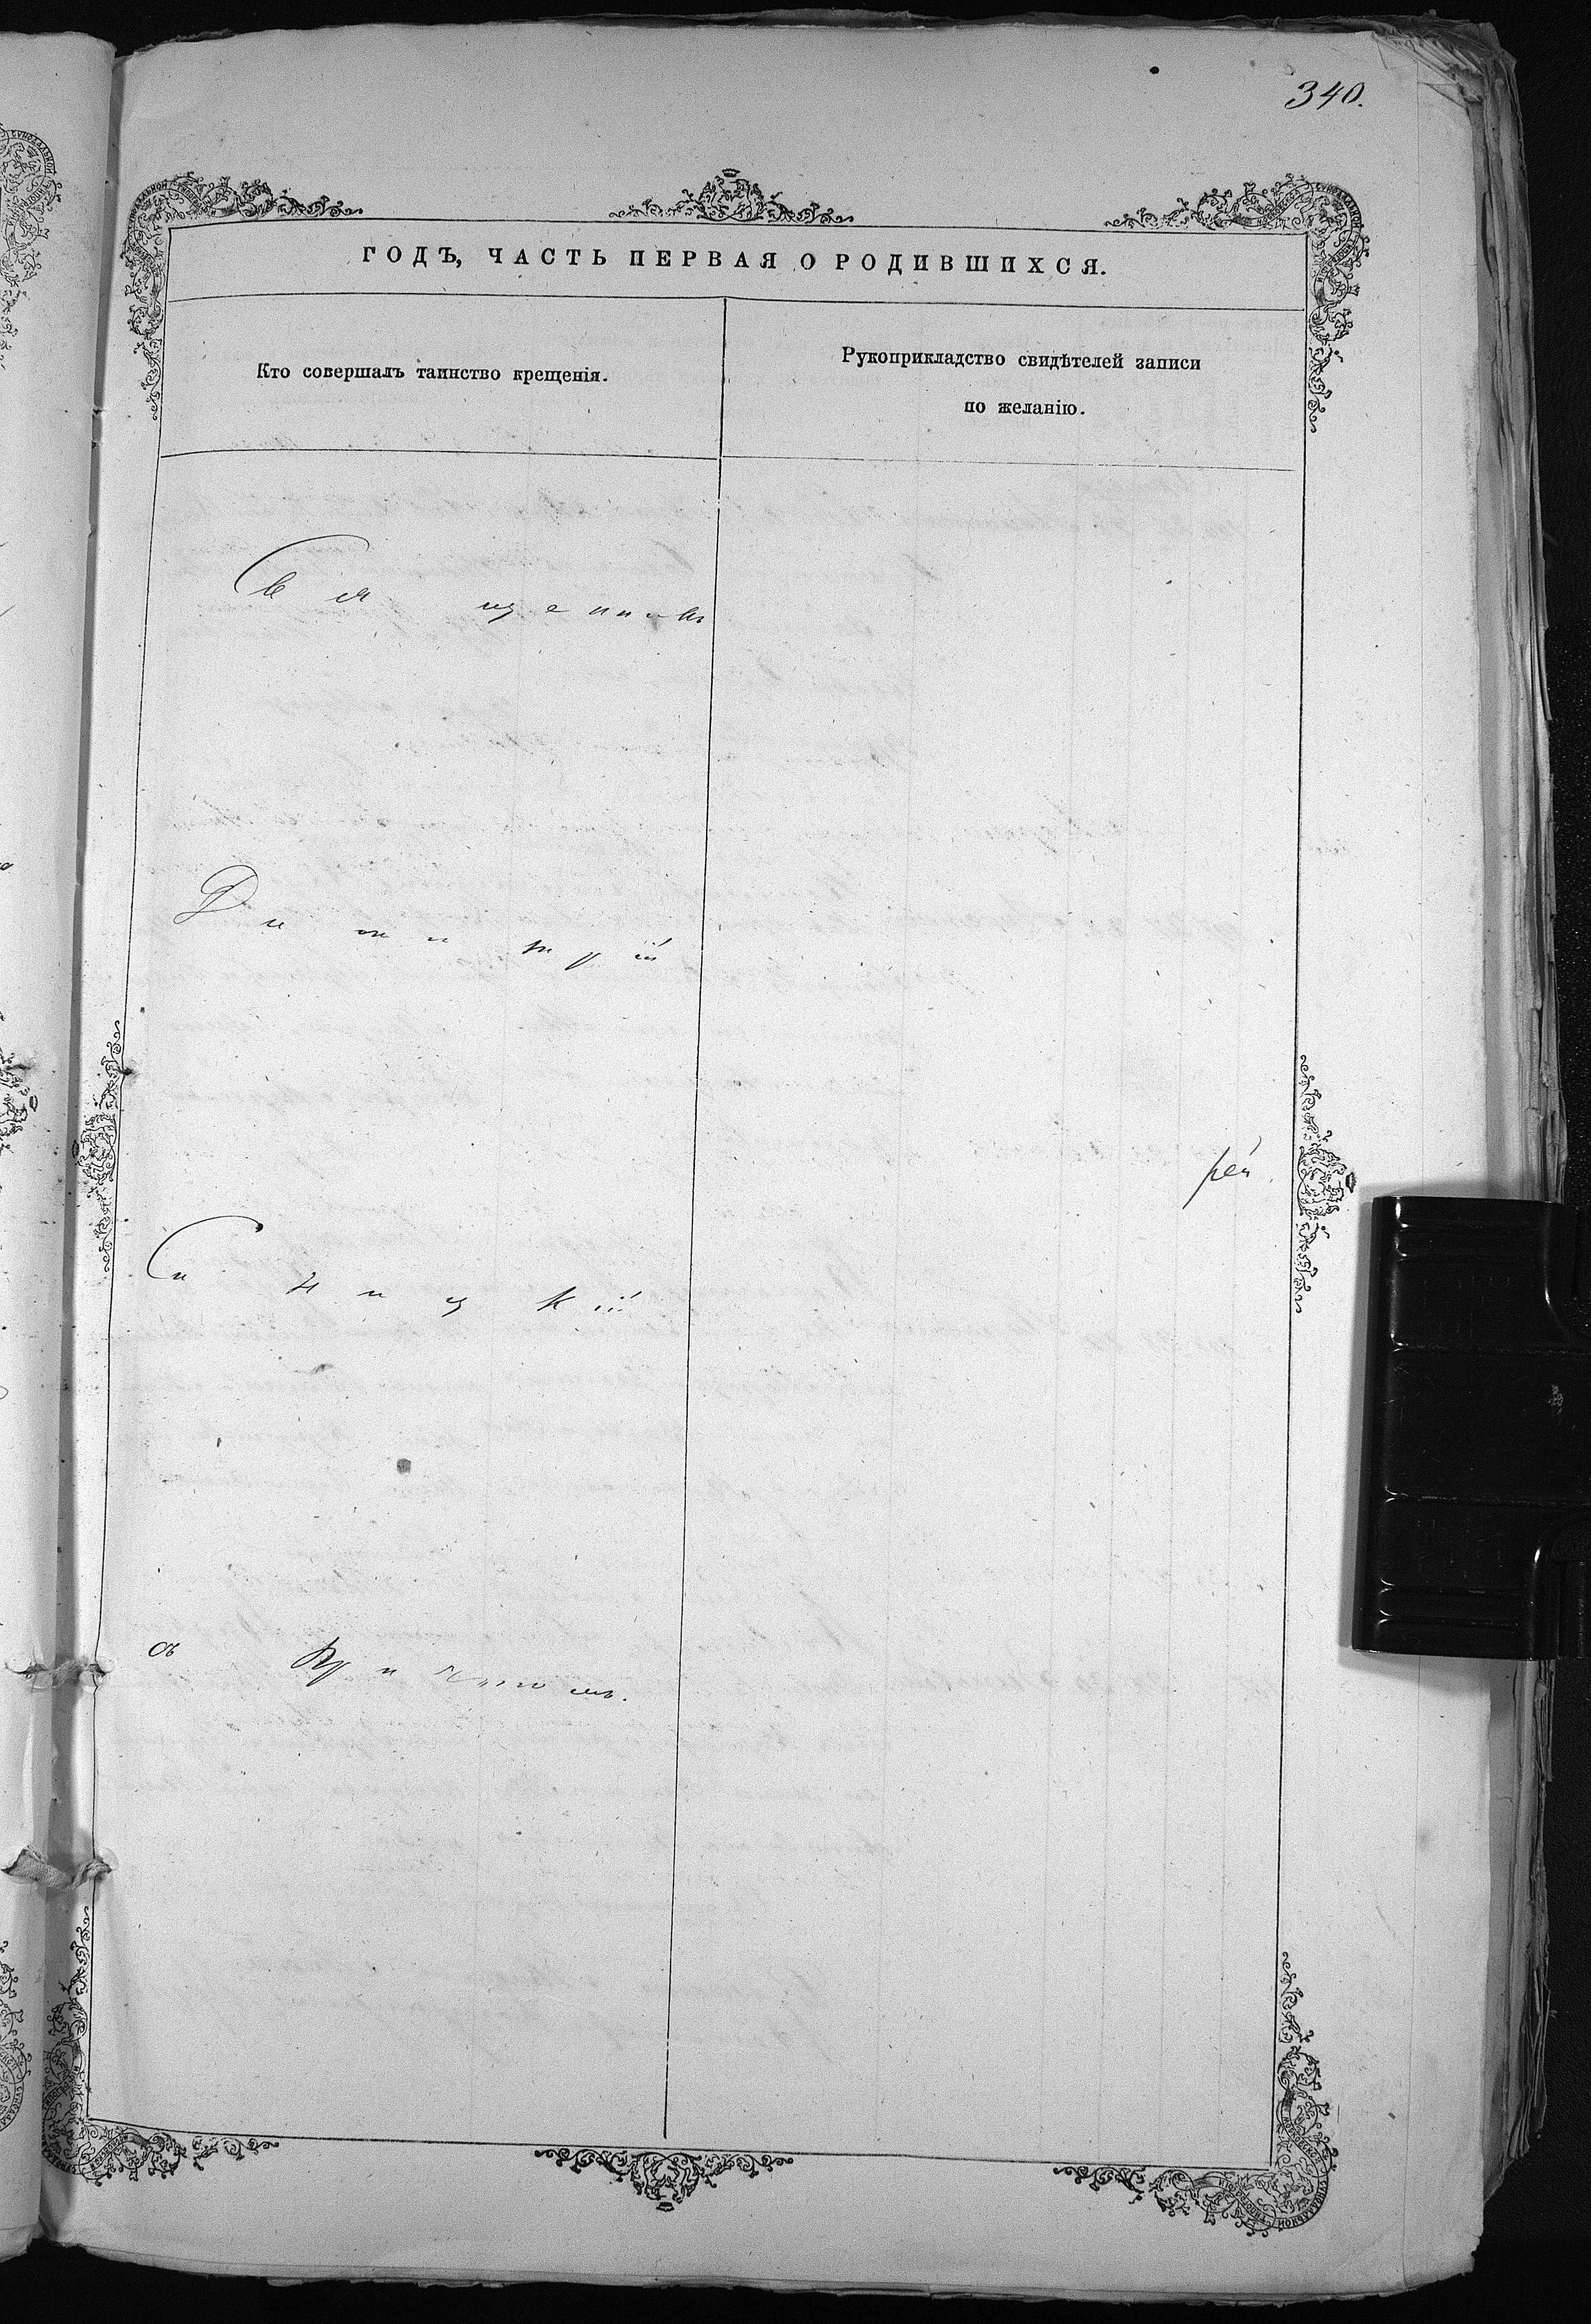 340.
ГОДЪ, ЧАСТЬ ПЕРВАЯ О РОДИВШИХСЯ.
Кто совершалъ таинство крещенія.
Рукоприкладство свидѣтелей записи
по желанію.
Священникъ
Димитрій
Синицкій
съ Причтомъ.